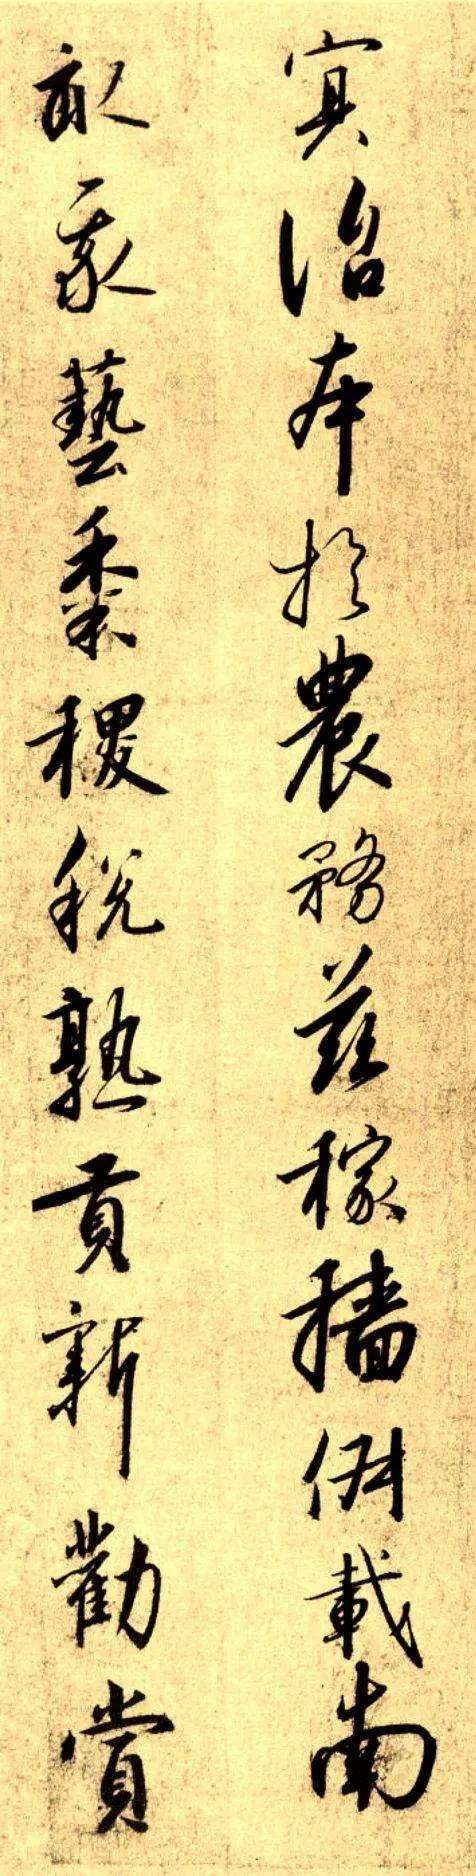 冥治本於農務茲稼穡俶載南
畝我藝黍稷稅熟貢新勸賞